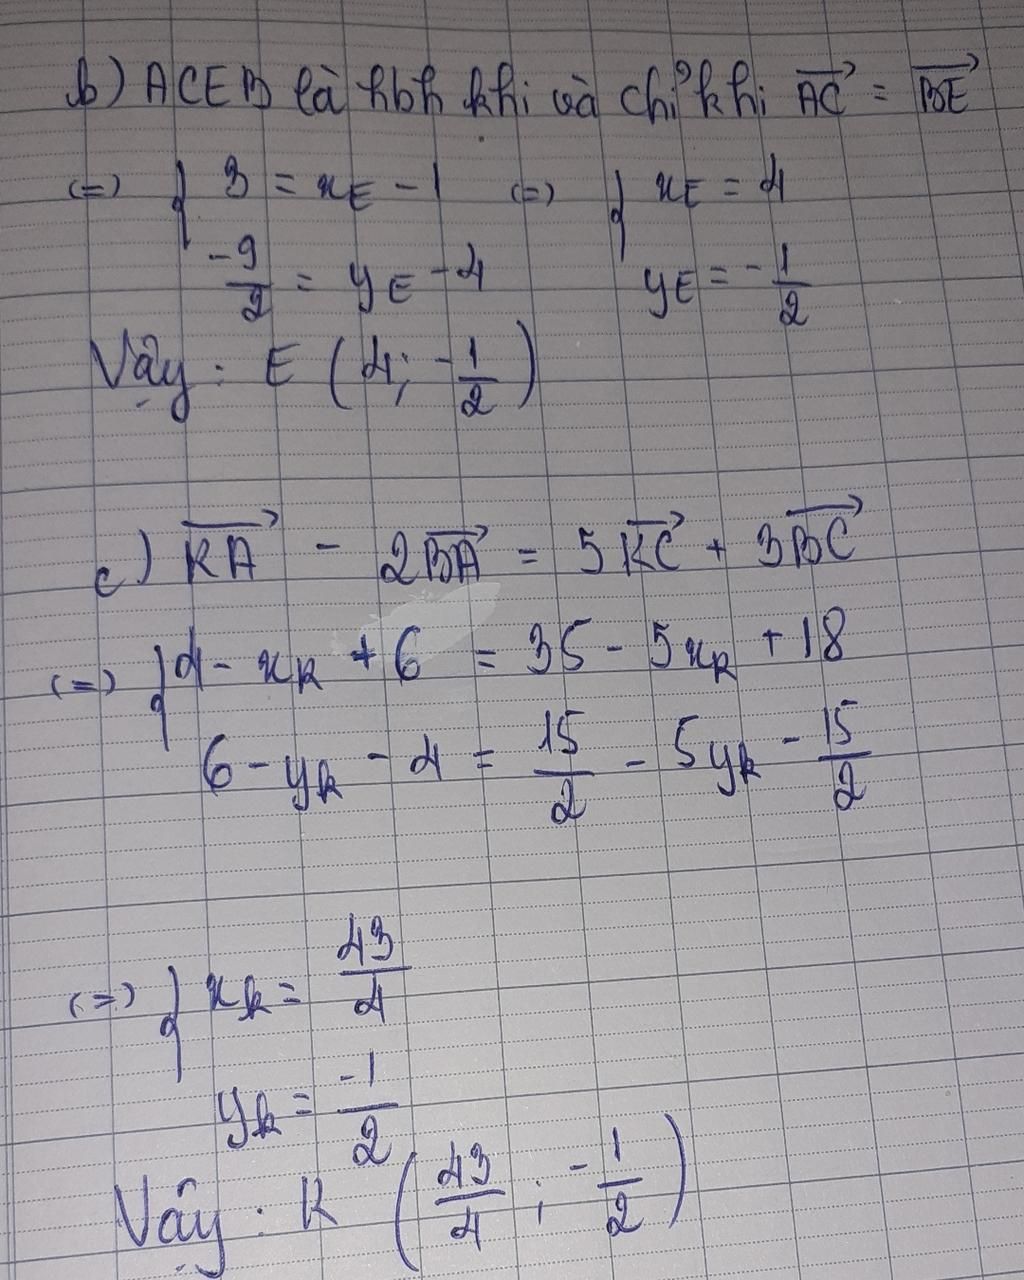 b) ACEB là hbh khi và chỉ khi $\overrightarrow{AC} = \overrightarrow{BE}$
(=) { 3 = x_E - 1 (=) { x_E = 4
$\frac{-9}{2}$ = y_E - 4 y_E = -$\frac{1}{2}$
Vậy : E (4; -$\frac{1}{2}$)
c) $\overrightarrow{KA}$ - 2$\overrightarrow{BA}$ = 5$\overrightarrow{KC}$ + 3$\overrightarrow{BC}$
(=) { 4 - x_K + 6 = 35 - 5x_K + 18
6 - y_K - 4 = $\frac{15}{2}$ - 5y_K - $\frac{15}{2}$
(=) { x_K = $\frac{43}{4}$
y_K = $\frac{-1}{2}$
Vậy : K ($\frac{43}{4}$ ; -$\frac{1}{2}$)